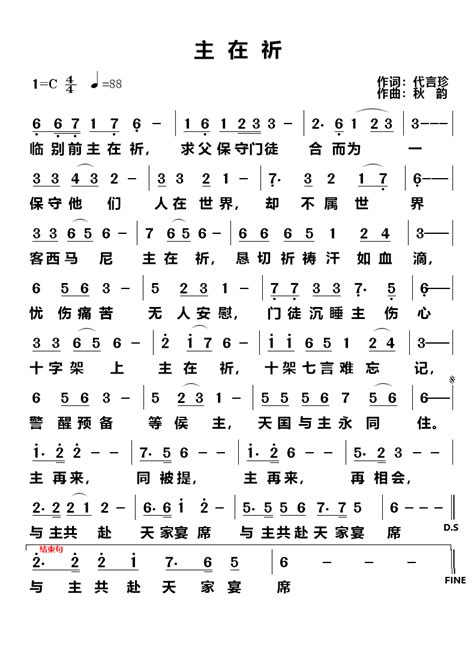 主在祈
1=C 4/4 ♩=88
作词：代言珍
作曲：秋 韵
6 6 7 1 7 6 - | 3 3 6 1 2 3 | 2· 6 1 2 3 | 3 - - -
临别前主在祈，求父保守门徒合而为一
3 3 4 3 2 - | 3 3 2 3 - | 7· 3 2 1 7 | 6 - - -
保守他们人在世界，却不属世界
3 3 6 5 6 - | 5 6 5 3 - | 6 6 5 6 5 1 | 2 4 3 -
客西马尼主在祈，恳切祈祷汗如血滴，
6 5 6 3 - | 1 2 3 6 - | 7 1 2 3 7 5 | 6 - - -
忧伤痛苦无人安慰，门徒沉睡主伤心
3 3 6 5 6 - | 2 1 7 6 - | 6 6 5 6 5 1 | 2 4 3 -
十字架上主在祈，十架七言难忘记，
警醒预备等侯主，天国与主永同住。
1· 2 2 - | 7· 5 6 - | 1· 2 2 - | 5· 2 3 -
主再来，同被提，主再来，再相会，
与主共赴天家宴席与主共赴天家宴席
D.S
结束句
与主共赴天家宴席
FINE